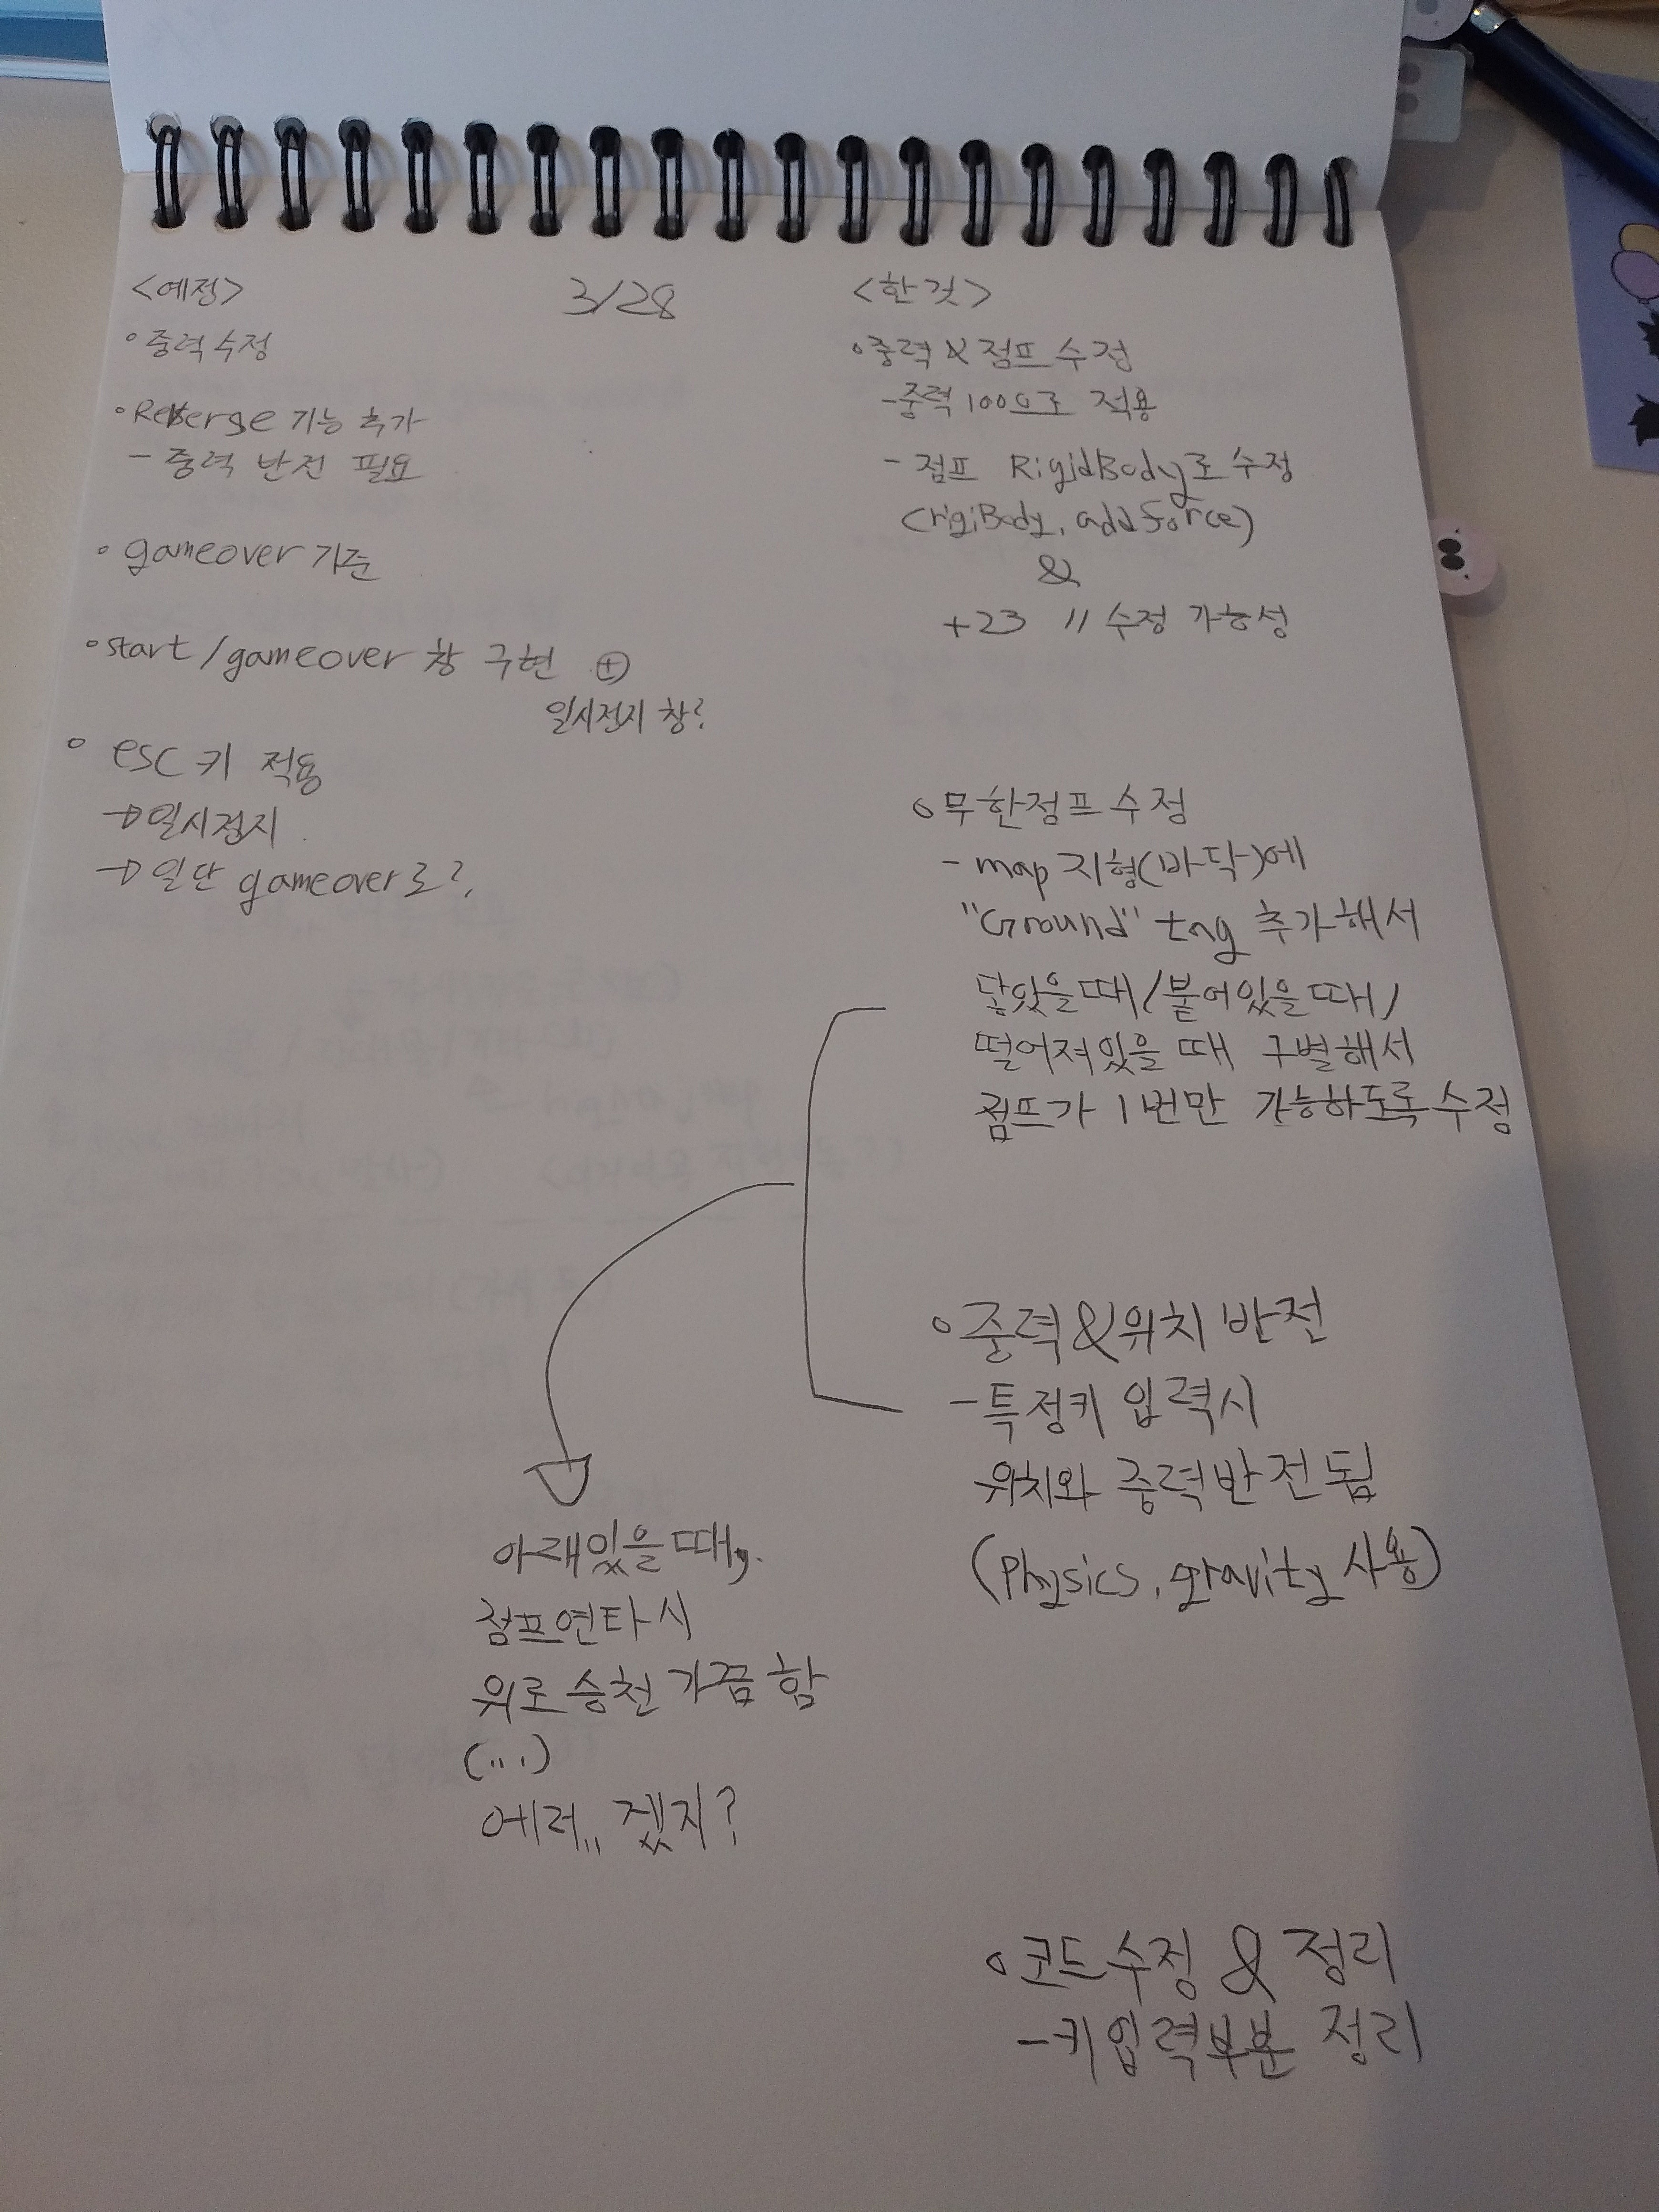 3/28
<예정>
◦ 중력 수정
◦ Reberse 기능 추가
- 중력 반전 필요
◦ gameover 기준
◦ start / gameover 창 구현 ⊕
일시정지 창?
◦ esc 키 적용
→ 일시정지
→ 일단 gameover로?
<한것>
◦ 중력 & 점프 수정
- 중력 100으로 적용
- 점프 RigidBody로 수정
(rigiBody. addforce)
&
+23 // 수정 가능성
◦ 무한점프 수정
- map 지형(바닥)에
"Ground" tag 추가해서
닿았을때/붙어있을때/
떨어져있을 때 구별해서
점프가 1번만 가능하도록 수정
◦ 중력 & 위치 반전
- 특정키 입력시
위치와 중력반전됨
(Physics. gravity 사용)
아래있을때,
점프연타시
위로 승천 가끔 함
(...)
에러.. 겠지?
◦ 코드수정 & 정리
- 키입력부분 정리